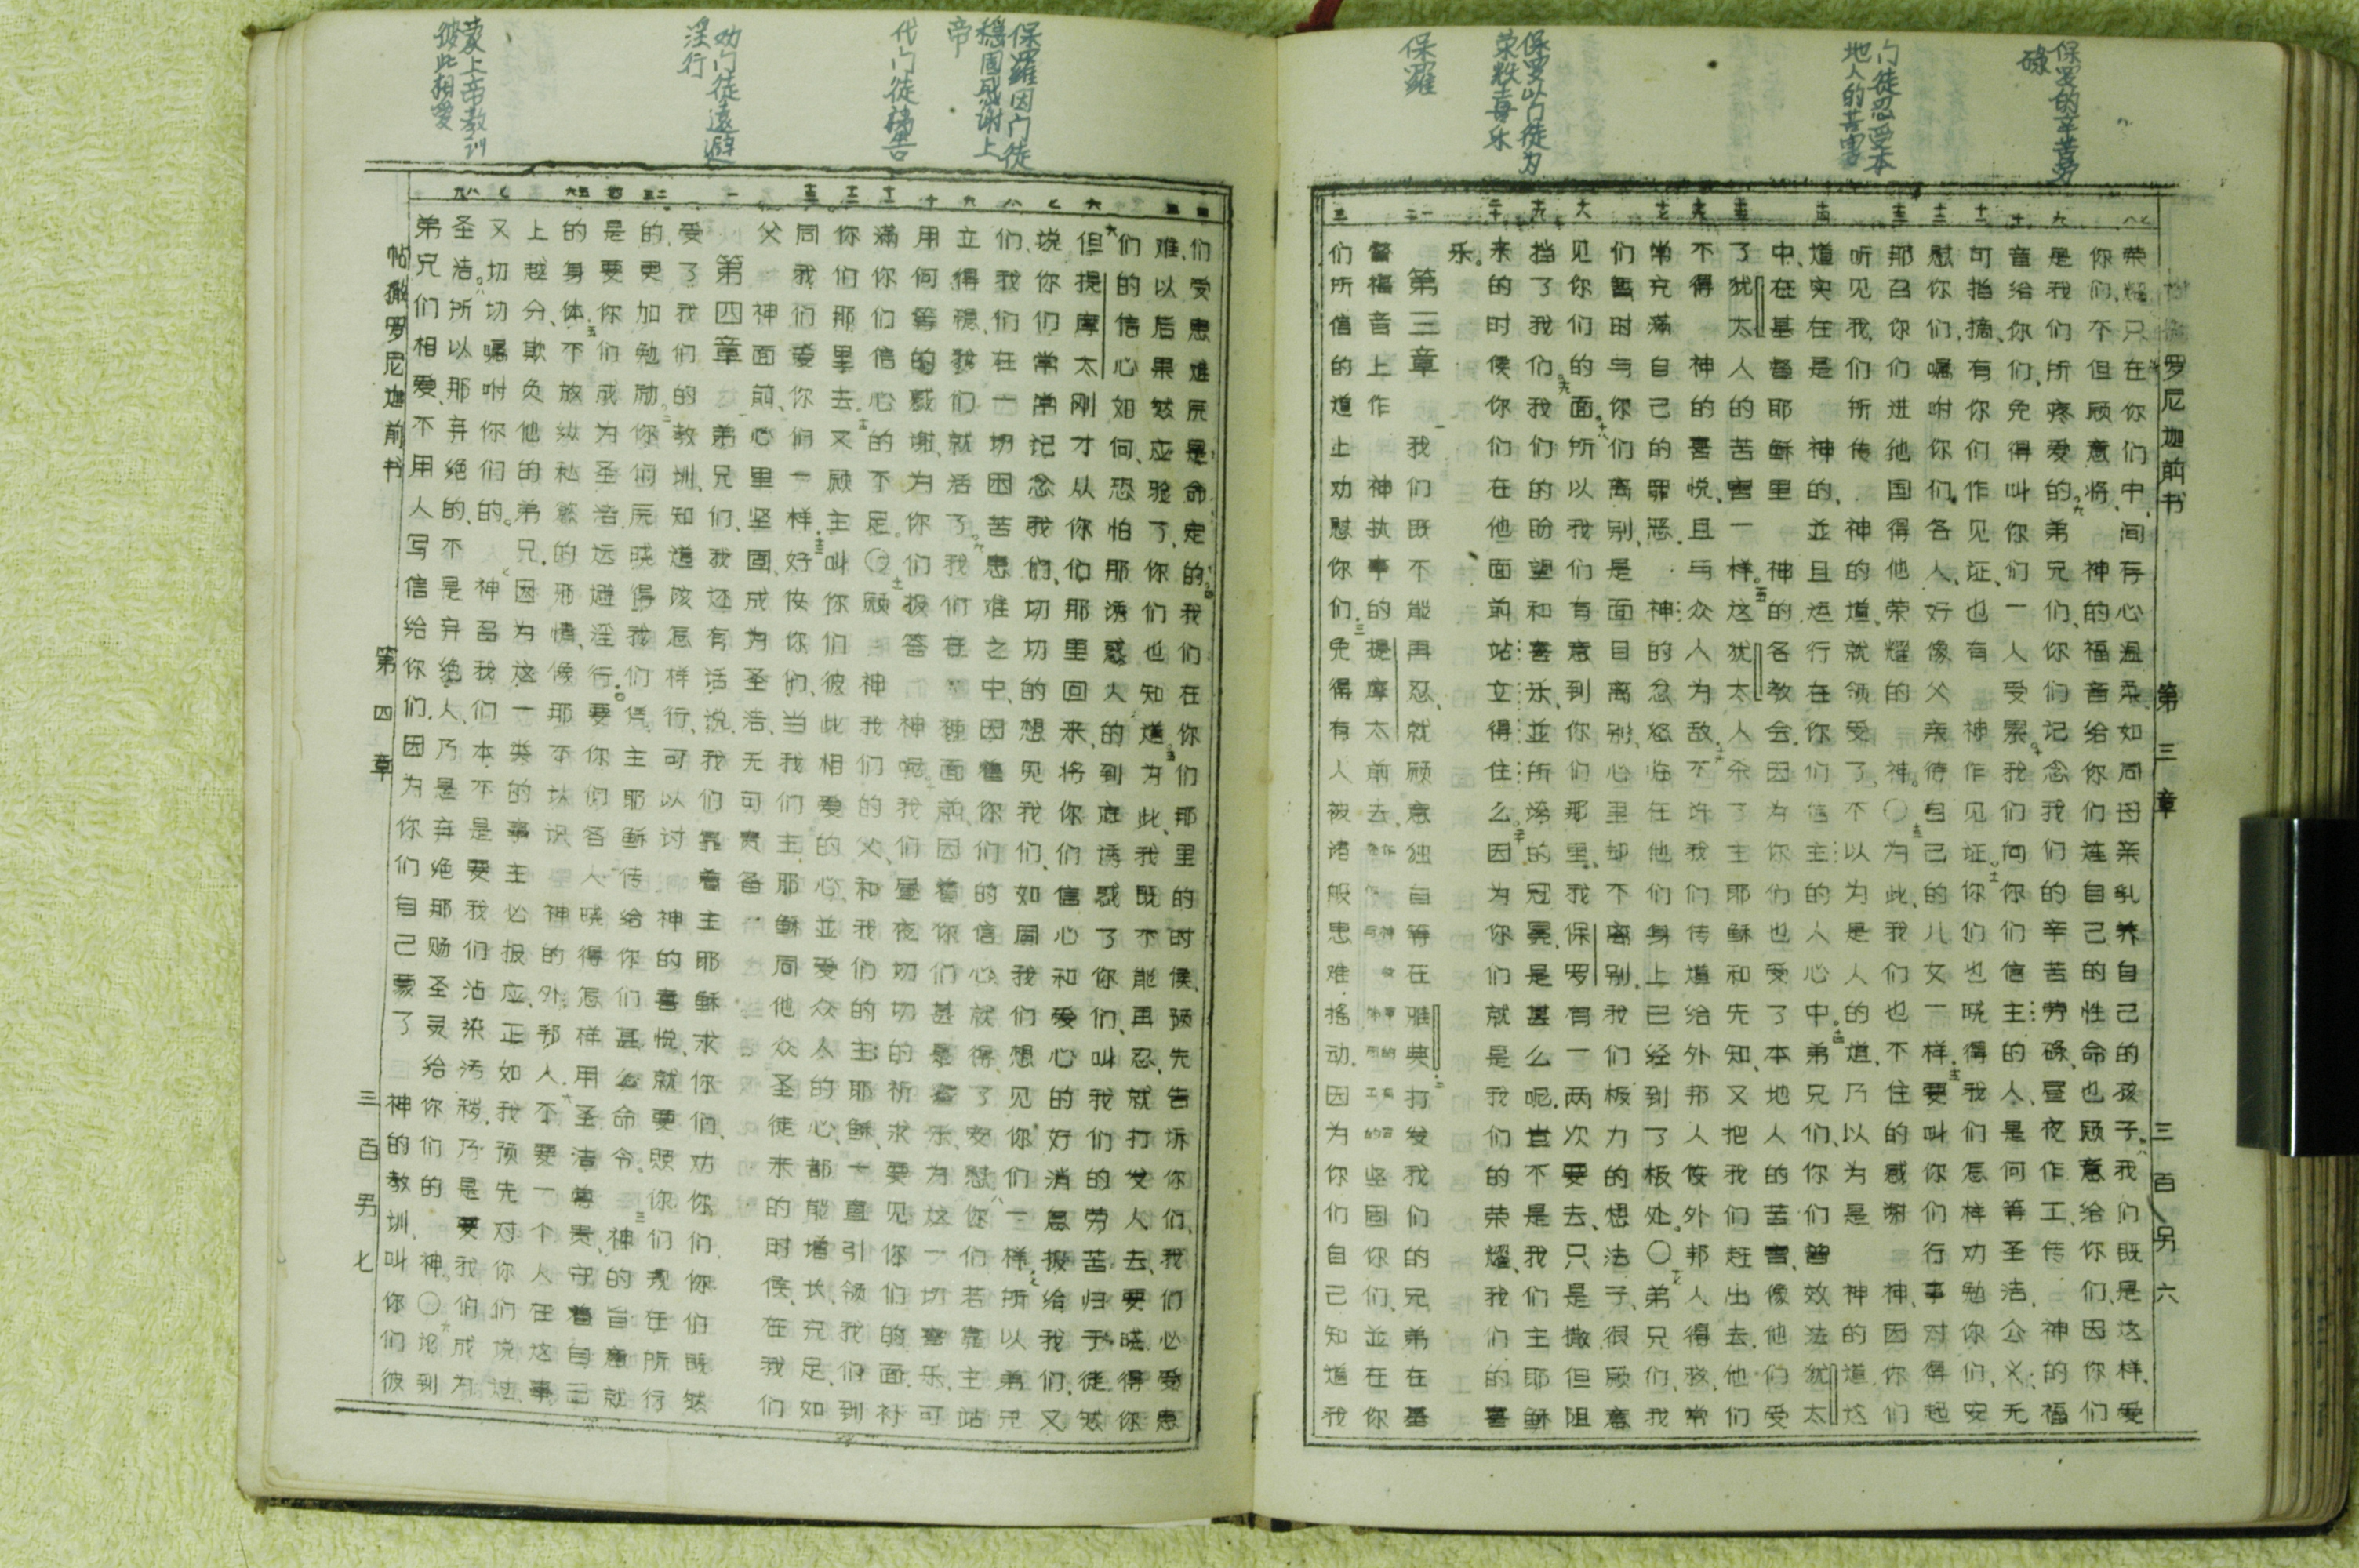 保罗的辛苦劳
碌
门徒忍受本
地人的苦害
保罗以门徒为
荣耀喜乐
保羅
帖撒罗尼迦前书 第三章 三百另六
荣耀.只在你们中、间存心温柔如同母亲乳养自己的孩子.我们既是这样.爱
你们.不但愿意将 神的福音给你们连自己的性命也愿意给你们.因你们
是我们所疼爱的.弟兄们.你们记念我们的辛苦劳碌.昼夜作工.传 神的福
音给你们.免得叫你们一人受累.我们向你们信主的人.是何等圣洁.公义.无
可指摘.有你们作见证.也有 神作见证.你们也晓得我们怎样劝勉你们.安
慰你们.嘱咐你们.各人好像父亲待自己的儿女一样.要叫你们行事对得起
那召你们进他国得他荣耀的 神.〇为此.我们也不住的感谢 神.因你们
听见我们所传 神的道.就领受了.不以为是人的道.乃以为是 神的道.这
道实在是 神的.並且运行在你们信主的人心中.弟兄们.你们曾效法犹太
中.在基督耶稣里 神的各教会.因为你们也受了本地人的苦害.像他们受
了犹太人的苦害一样.这犹太人杀了主耶稣和先知.又把我们赶出去.他们
不得 神的喜悦.且与众人为敌.不许我们传道给外邦人.使外邦人得救.常
常充满自己的罪恶. 神的忿怒临在他们身上已经到了极处.〇弟兄们.我
们暂时与你们离别.是面目离别.心里却不离别.我们极力的想法子.很愿意
见你们的面.所以我们有意到你们那里.我保罗有一两次要去.只是撒但阻
挡了我们.我们的盼望和喜乐並所夸的冠冕.是甚么呢.岂不是我们主耶稣
来的时候你们在他面前站立得住么.因为你们就是我们的荣耀.我们的喜
乐.
第三章 我们既不能再忍.就愿意独自等在雅典.打发我们的兄弟在基
督福音上作 神执事的提摩太前去.坚固你们.並在你
们所信的道上劝慰你们.免得有人被诸般患难摇动.因为你们自己知道我
保羅因门徒
穩固感谢上
帝
代门徒祷告
劝门徒遠避
淫行
蒙上帝教训
彼此相愛
们受患难.原是命定的.我们在你们那里的时候.预先告诉你们.我们必受患
难.以后果然应验了.你们也知道.为此.我既不能再忍.就打发人去.要晓得你
们的信心如何.恐怕那诱惑人的到底诱惑了你们.叫我们的劳苦归于徒然
但提摩太刚才从你们那里回来.将你们信心和爱心的好消息报给我们.又
说你们常常记念我们.切切的想见我们.如同我们想见你们一样.所以弟兄
们.我们在一切困苦患难之中.因着你们的信心就得了安慰.你们若靠主站
立得稳.我们就活了.我们在 神面前.因着你们甚是喜乐.为这一切喜乐.可
用何等的感谢.为你们报答 神呢.我们昼夜切切的祈求.要见你们的面.补
满你们信心的不足.〇愿 神我们的父.和我们的主耶稣.一直引领我们到
你们那里去.又愿主叫你们彼此相爱的心.並爱众人的心.都能增长.充足.如
同我们爱你们一样.好使你们.当我们主耶稣同他众圣徒来的时候.在我们
父 神面前.心里坚固.成为圣洁.无可责备
第四章 弟兄们.我还有话说.我们靠着主耶稣求你们.劝你们.你们既然
受了我们的教训.知道该怎样行.可以讨 神的喜悦.就要照你们现在所行
的.更加勉励.你们原晓得我们凭主耶稣传给你们甚么命令. 神的旨意就
是要你们成为圣洁.远避淫行.要你们各人晓得怎样用圣洁尊贵.守着自己
的身体.不放纵私慾的邪情.像那不认识 神的外邦人.不要一个人在这事
上越分.欺负他的弟兄.因为这一类的事主必报应.正如我预先对你们说过
又切切嘱咐你们的. 神召我们.本不是要我们沾染污秽.乃是要我们成为
圣洁.所以那弃绝的.不是弃绝人.乃是弃绝那赐圣灵给你们的 神.〇论到
弟兄们相爱.不用人写信给你们.因为你们自己蒙了 神的教训.叫你们彼
帖撒罗尼迦前书 第四章 三百另七